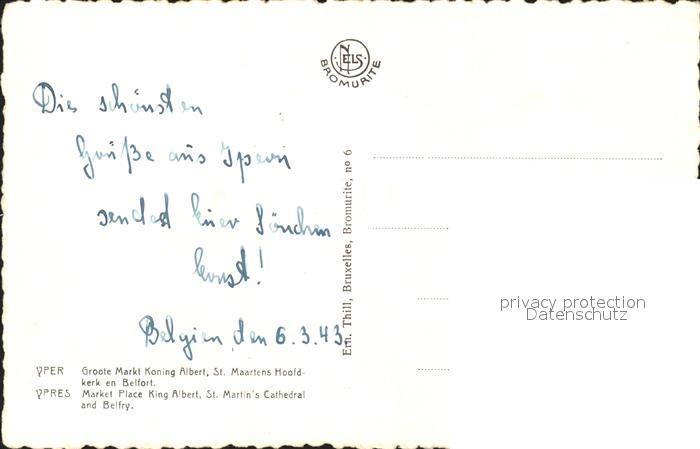 NELS
BROMURITE
Die schönsten
Grüße aus Ypern
sendet
Ernst!
Belgien, den 6.3.43.
Ern. Thill, Bruxelles, Bromurite, nº 6
YPER Groote Markt Koning Albert, St. Maartens Hoofd-
kerk en Belfort.
YPRES Market Place King Albert, St. Martin's Cathedral
and Belfry.
privacy protection
Datenschutz